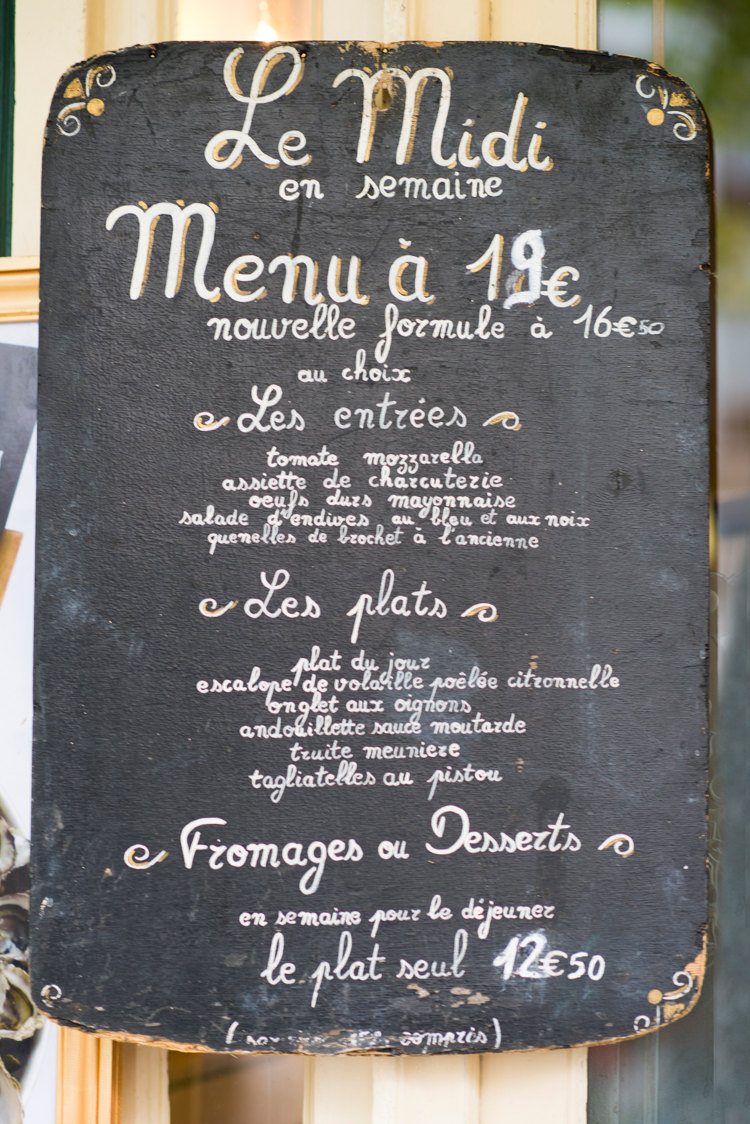 Le Midi
en semaine
Menu à 19€
nouvelle formule à 16€50
au choix
Les entrées
tomate mozzarella
assiette de charcuterie
oeufs durs mayonnaise
salade d'endives au bleu et aux noix
quenelles de brochet à l'ancienne
Les plats
plat du jour
escalope de volaille poêlée citronnelle
onglet aux oignons
andouillette sauce moutarde
truite meuniere
tagliatelles au pistou
Fromages ou Desserts
en semaine pour le déjeuner
le plat seul 12€50
compris)